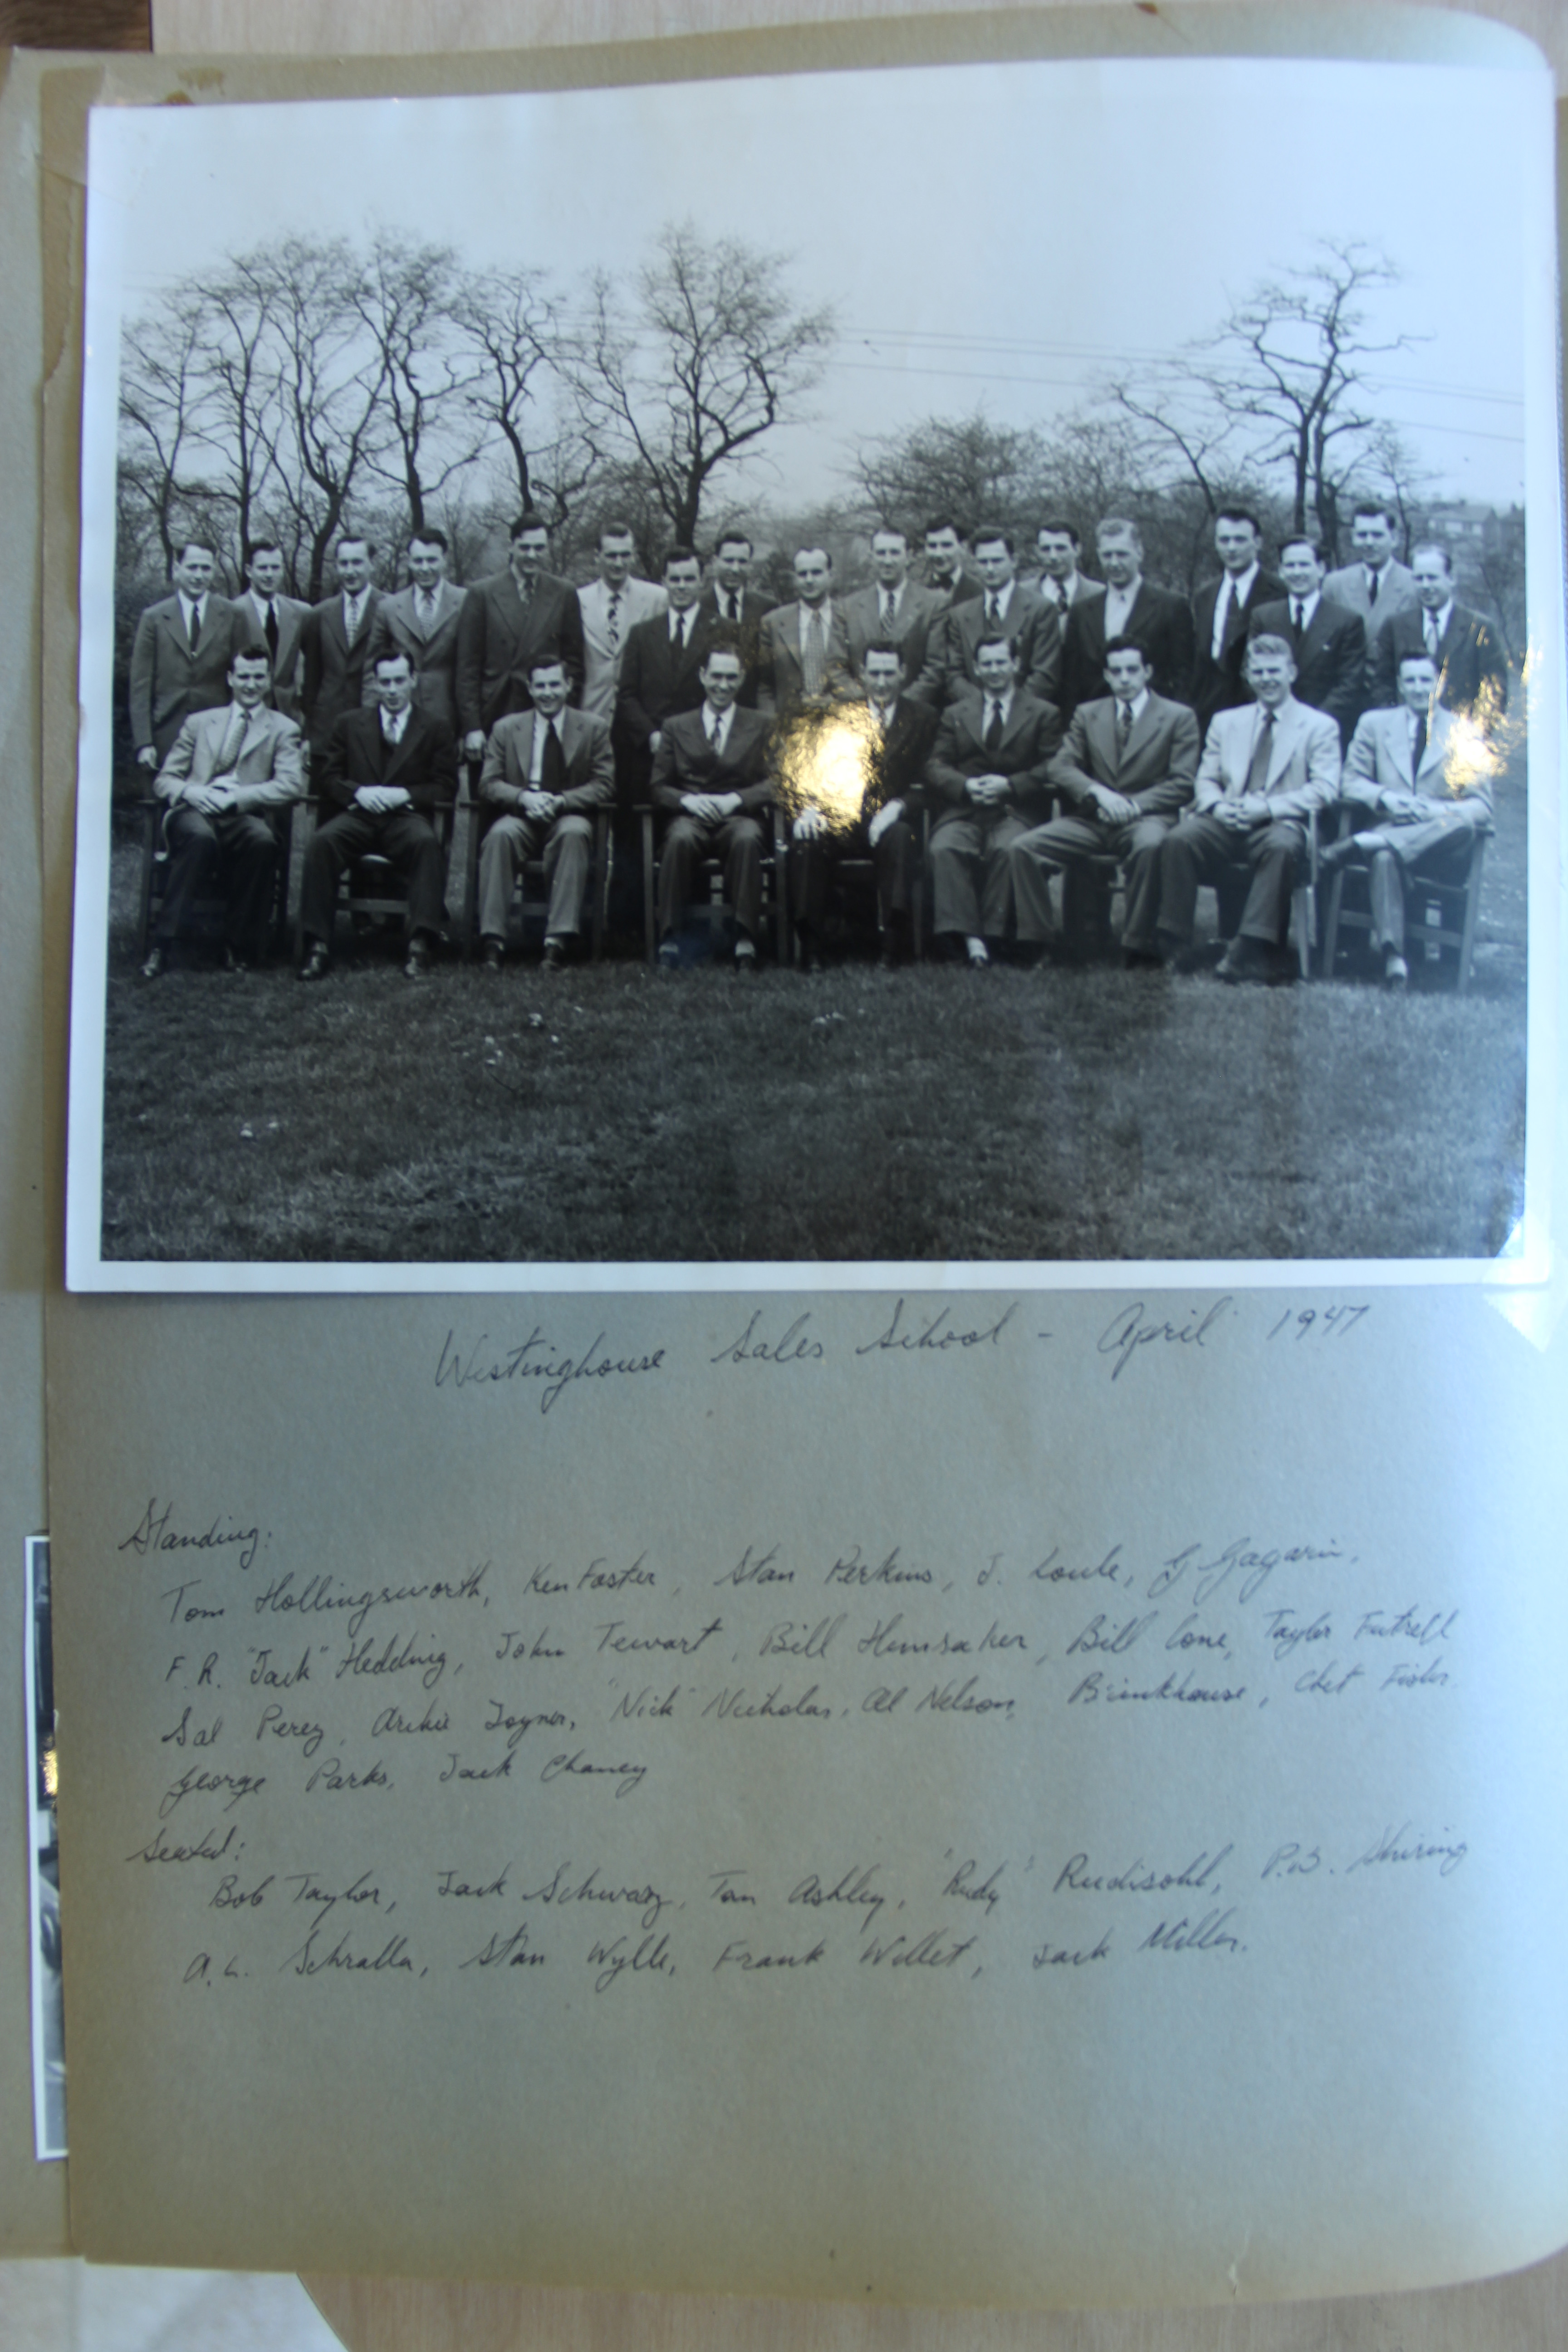 Westinghouse Sales School - April 1947
Standing:
Tom Hollingsworth, Ken Foster, Stan Perkins, J. Soule, G Gagarin,
F. R. "Jack" Hedding, John Tewart, Bill Hunsaker, Bill Cone, Taylor Futrell
Sal Perez, Archie Joyner, "Nick" Nicholas, Al Nelson, Brinkhouse, Chet Fisher,
George Parks, Jack Chaney
Seated:
Bob Taylor, Jack Schwarz, Tom Ashley, "Rudy" Rudisohl, P.B. Shiring
A. L. Schralla, Stan Wylle, Frank Willet, Jack Miller.